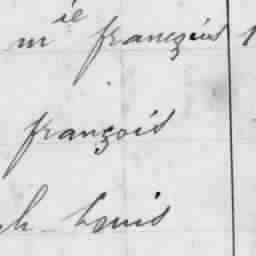 mie françois
françois
h Louis